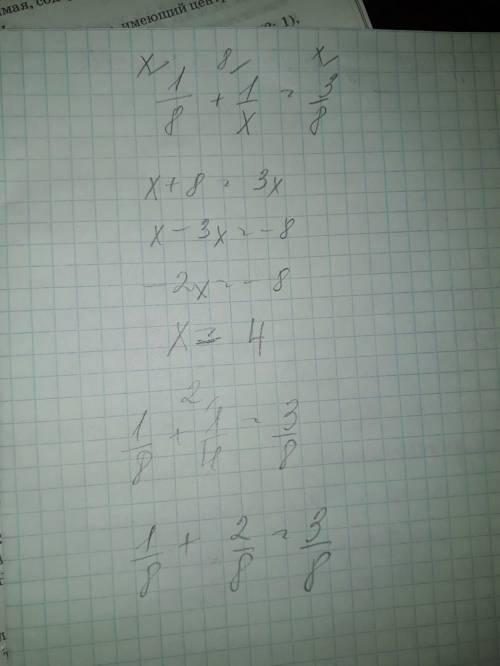 мая, сод
имеющий центр
1),
x 8 x
1/8 + 1/x = 3/8
x + 8 = 3x
x - 3x = -8
-2x = -8
x = 4
2
1/8 + 1/4 = 3/8
1/8 + 2/8 = 3/8